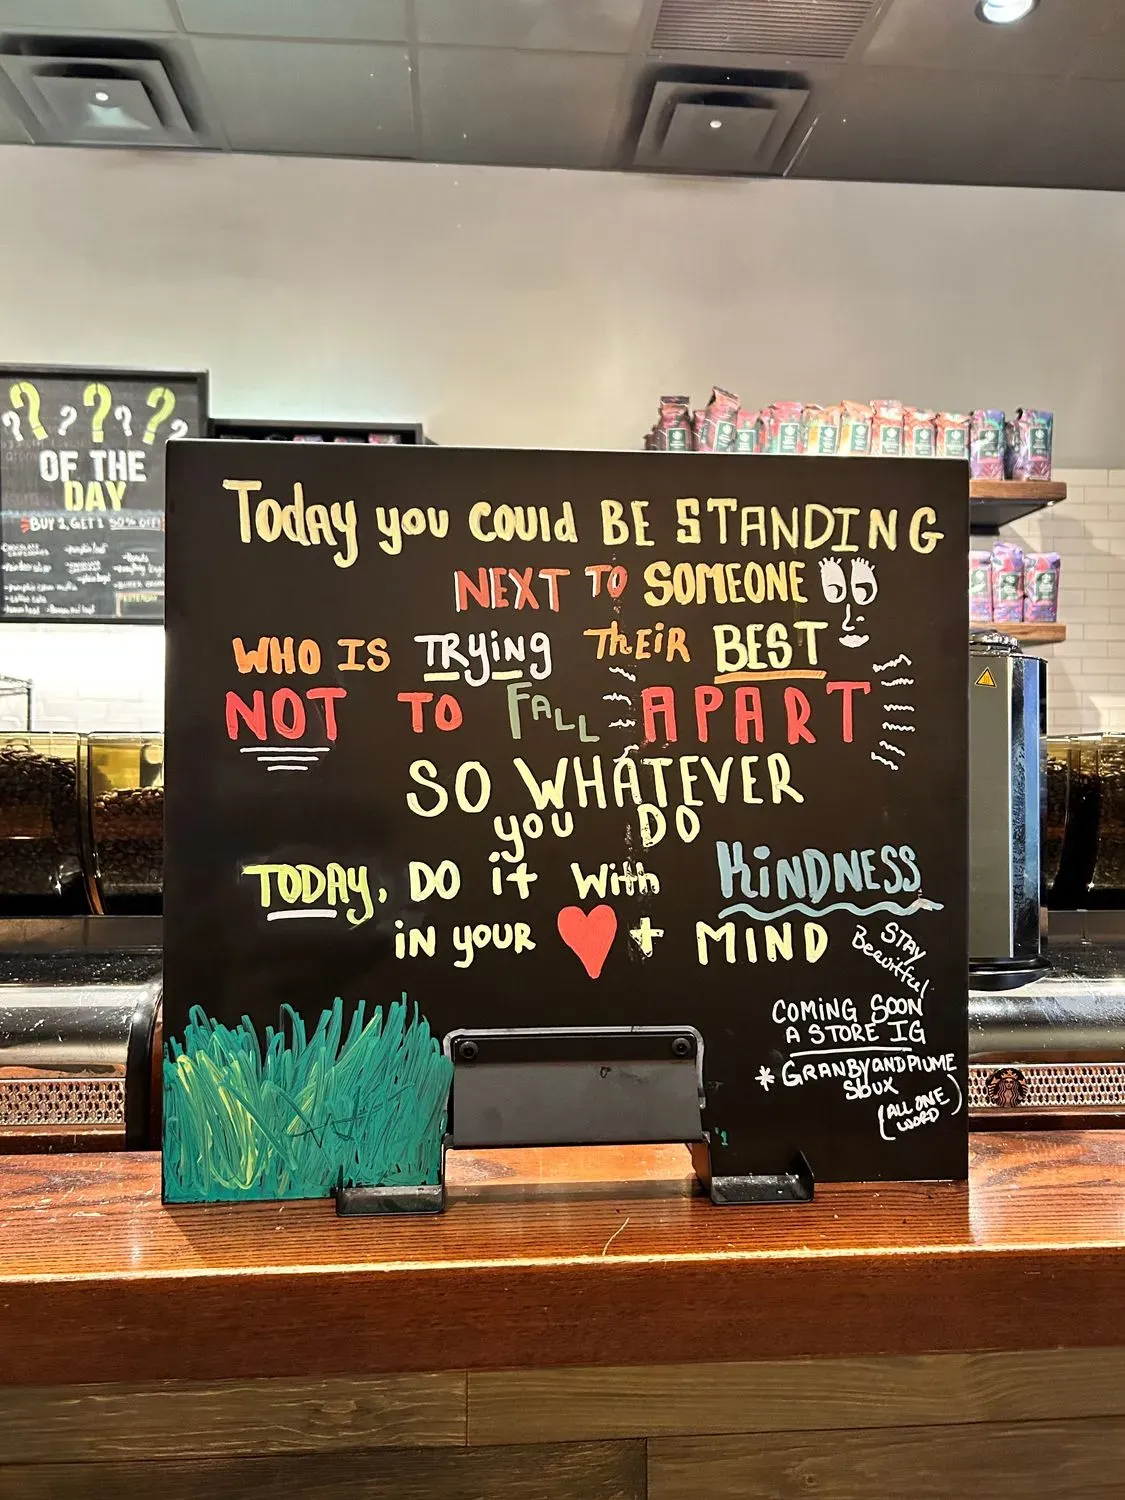 OF THE
DAY
BUY 1, GET 1 50% OFF!
Today you could BE STANDING
NEXT TO SOMEONE
WHO IS TRYING THEIR BEST
NOT TO FALL APART
SO WHATEVER
you DO
TODAY, DO it with KINDNESS
IN YOUR + MIND
STAY
Beautiful
COMING SOON
A STORE IG
* GRANBYANDPLUME
SBUX
(ALL ONE
WORD)